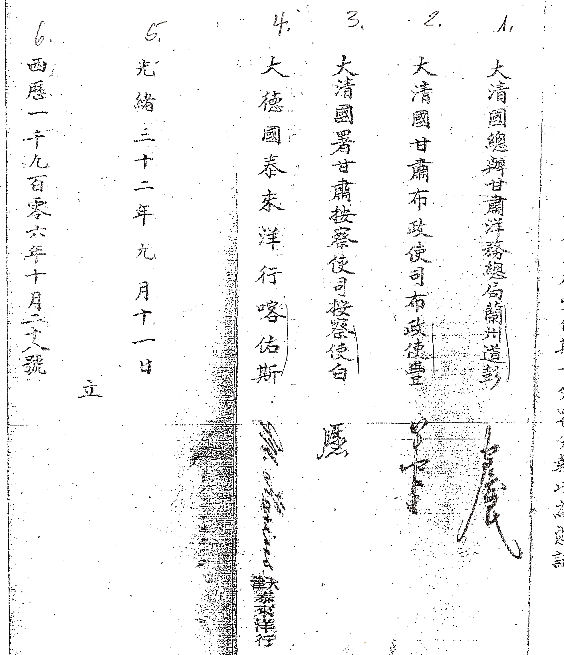 1.
大清國總辦甘肅洋務總局蘭州道彭
2.
大清國甘肅布政使司布政使豐
3.
大清國署甘肅按察使司按察使白
4.
大德國泰來洋行喀佑斯
泰來洋行
5.
光緒三十二年九月十一日
立
6.
西曆一千九百零六年十月二十八號